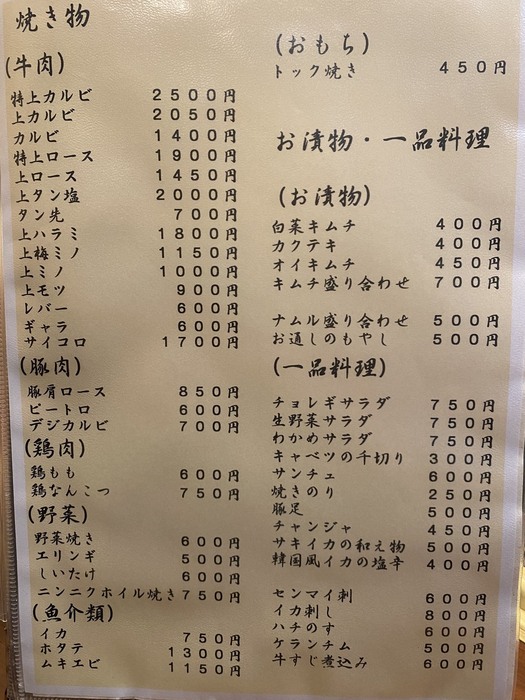 焼き物
(牛肉)
特上カルビ 2500円
上カルビ 2050円
カルビ 1400円
特上ロース 1900円
上ロース 1450円
上タン塩 2000円
タン先 700円
上ハラミ 1800円
上梅ミノ 1150円
上ミノ 1000円
上モツ 900円
レバー 600円
ギャラ 600円
サイコロ 1700円
(豚肉)
豚肩ロース 850円
ピートロ 600円
デジカルビ 700円
(鶏肉)
鶏もも 600円
鶏なんこつ 750円
(野菜)
野菜焼き 600円
エリンギ 500円
しいたけ 600円
ニンニクホイル焼き 750円
(魚介類)
イカ 750円
ホタテ 1300円
ムキエビ 1150円
(おもち)
トック焼き 450円
お漬物・一品料理
(お漬物)
白菜キムチ 400円
カクテキ 400円
オイキムチ 450円
キムチ盛り合わせ 700円
ナムル盛り合わせ 500円
お通しのもやし 500円
(一品料理)
チョレギサラダ 750円
生野菜サラダ 750円
わかめサラダ 750円
キャベツの千切り 300円
サンチュ 600円
焼きのり 250円
豚足 500円
チャンジャ 450円
サキイカの和え物 500円
韓国風イカの塩辛 400円
センマイ刺 600円
イカ刺し 800円
ハチのす 600円
ケランチム 500円
牛すじ煮込み 600円